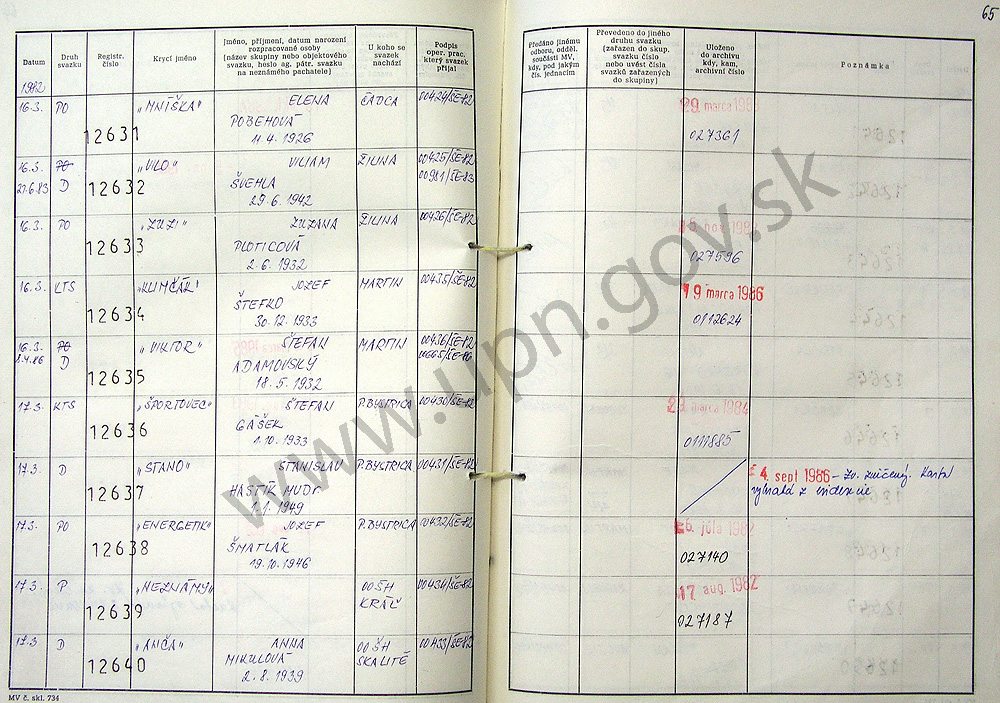 65
Datum
Druh svazku
Registr. číslo
Krycí jméno
Jméno, příjmení, datum narození
rozpracované osoby
(název skupiny nebo objektového
svazku, heslo ag. pátr. svazku
na neznámého pachatele)
U koho se
svazek
nachází
Podpis
oper. prac.
který svazek
přijal
Předáno jinému
odboru, odděl.
součásti MV,
kdy, pod jakým
čís. jednacím
Převedeno do jiného
druhu svazku
(zařazen do skup.
svazku číslo
nebo uvést čísla
svazků zařazených
do skupiny)
Uloženo
do archivu
kdy, kam,
archivní číslo
Poznámka
1982
16.3. PO "MNÍŠKA" ELENA ČADCA 00424/ŠE-82
12631 POBEHOVÁ
11.4.1926
29. marca
027361
16.3. PO "VILO" VILIAM ŽILINA 00425/ŠE-82
27.6.83 D 12632 ŠVEHLA 00981/ŠE-83
29.6.1942
16.3. PO "ZUZI" ZUZANA ŽILINA 00426/ŠE-82
12633 PLOTICOVÁ
2.6.1932
027596
16.3. KTS "KLIMČÁK" JOZEF MARTIN 00435/ŠE-82
12634 ŠTEFKO
30.12.1933
19 marca 1986
0112624
16.3. PO "VIKTOR" ŠTEFAN MARTIN 00436/ŠE-82
D 12635 ADAMOVSKÝ
18.5.1932
17.3. KTS "ŠPORTOVEC" ŠTEFAN P.BYSTRICA 00430/ŠE-82
12636 GÁŠEK
1.10.1933
marca 1984
0111885
17.3. D "STANO" STANISLAV P.BYSTRICA 00431/ŠE-82
12637 HAŠTÍK MUDr.
1.1.1949
4. sept 1986 – Zv. zničený. Karta
vybratá z evidencie
17.3. PO "ENERGETIK" JOZEF P.BYSTRICA 00432/ŠE-82
12638 ŠMATLÁK
19.10.1946
júla 1982
027140
17.3. P "NEZNÁMY" OO ŠH 00434/ŠE-82
12639 KRÁĽ
17 aug. 1982
027187
17.3. D "ANČA" ANNA OO ŠH 00433/ŠE-82
12640 MIKULOVÁ SKALITÉ
2.8.1939
MV č. skl. 734
www.upn.gov.sk